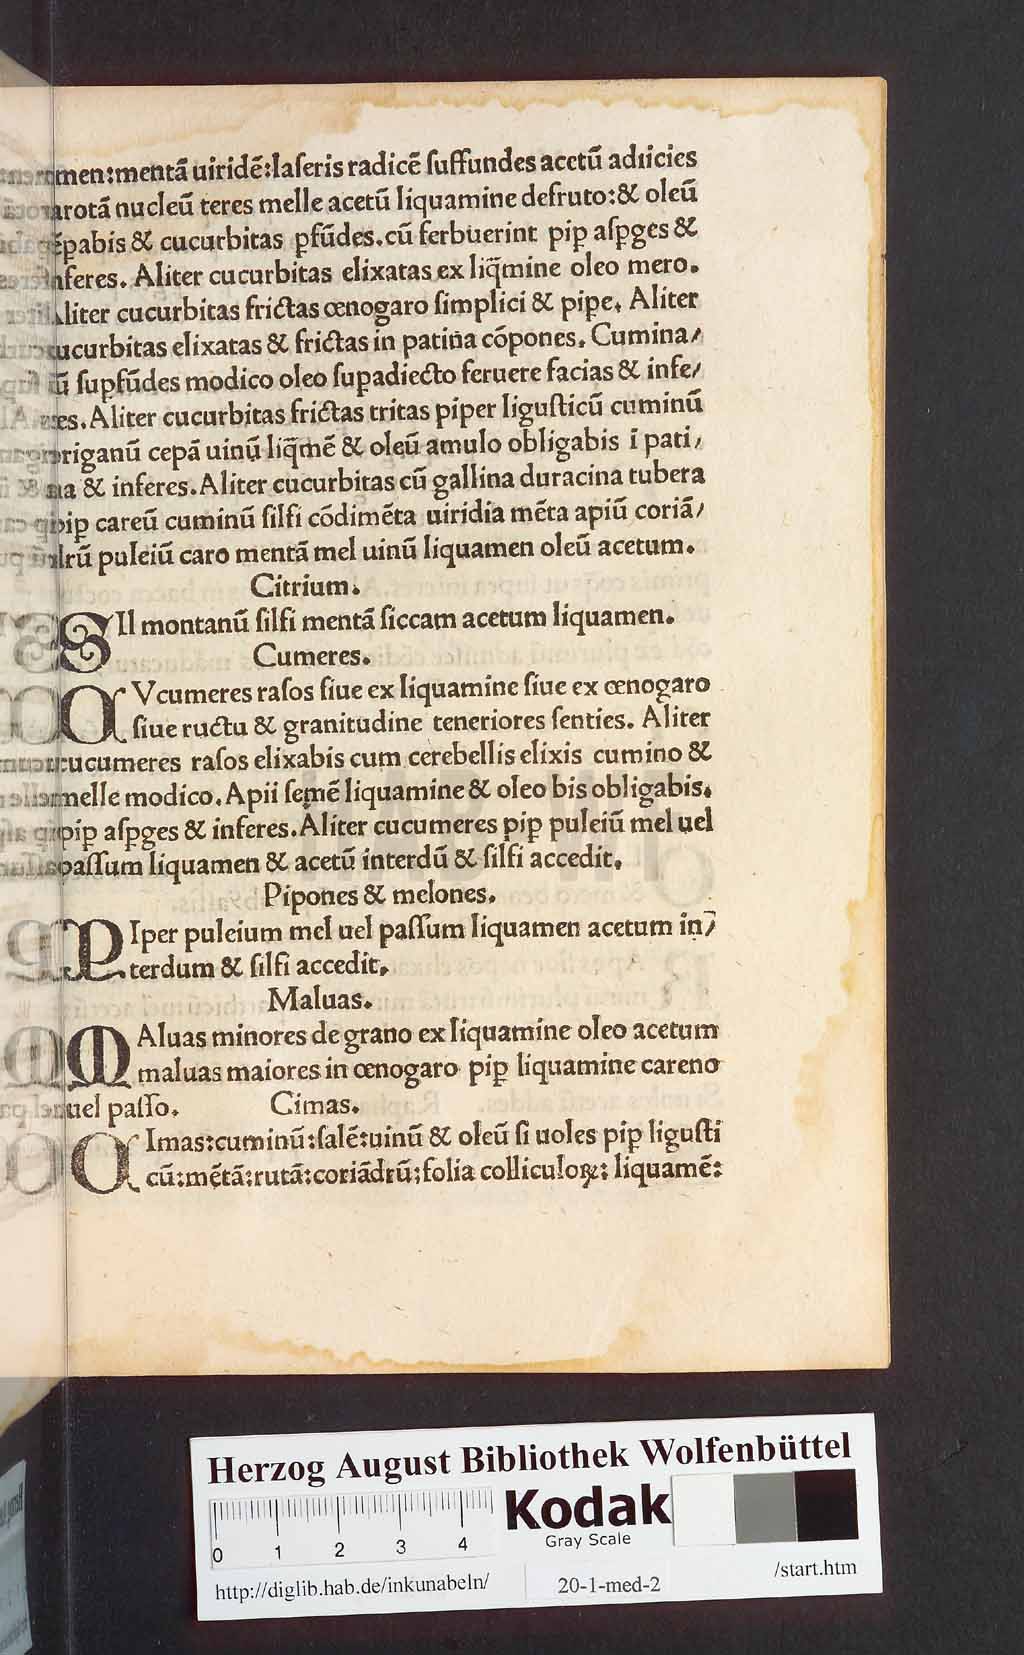 men:mentā uiridē:laſeris radicē ſuffundes acetū adiicies
arotā nucleū teres melle acetū liquamine defruto:& oleū
ēꝑabis & cucurbitas ꝑfūdes.cū ferbuerint pip̱ aſꝑges &
nferes. Aliter cucurbitas elixatas ex liq̄mine oleo mero.
Aliter cucurbitas frictas œnogaro ſimplici & piꝑe. Aliter
cucurbitas elixatas & frictas in patina cōpones. Cumina/
tū ſuꝑfūdes modico oleo ſuꝑadiecto feruere facias & infe/
es. Aliter cucurbitas frictas tritas piper liguſticū cuminū
origanū cepā uinū liq̄mē & oleū amulo obligabis ī pati/
na & inferes. Aliter cucurbitas cū gallina duracina tubera
piꝑ careū cuminū ſilfi cōdimēta uiridia mēta apiū coriā/
drū puleiū caro mentā mel uinū liquamen oleū acetum.
Citrium.
SIl montanū ſilfi mentā ſiccam acetum liquamen.
Cumeres.
CVcumeres raſos ſiue ex liquamine ſiue ex œnogaro
ſiue ructu & granitudine teneriores ſenties. Aliter
cucumeres raſos elixabis cum cerebellis elixis cumino &
melle modico. Apii ſemē liquamine & oleo bis obligabis.
piꝑ aſꝑges & inferes. Aliter cucumeres piꝑ puleiū mel uel
paſſum liquamen & acetū interdū & ſilfi accedit.
Pipones & melones.
PIper puleium mel uel paſſum liquamen acetum in/
terdum & ſilfi accedit.
Maluas.
MAluas minores de grano ex liquamine oleo acetum
maluas maiores in œnogaro piꝑ liquamine careno
uel paſſo. Cimas.
CImas:cuminū:ſalē:uinū & oleū ſi uoles piꝑ liguſti
cū:mētā:rutā:coriādrū:folia colliculoꝝ: liquamē:
Herzog August Bibliothek Wolfenbüttel
0 1 2 3 4
Kodak
Gray Scale
http://diglib.hab.de/inkunabeln/ 20-1-med-2 /start.htm